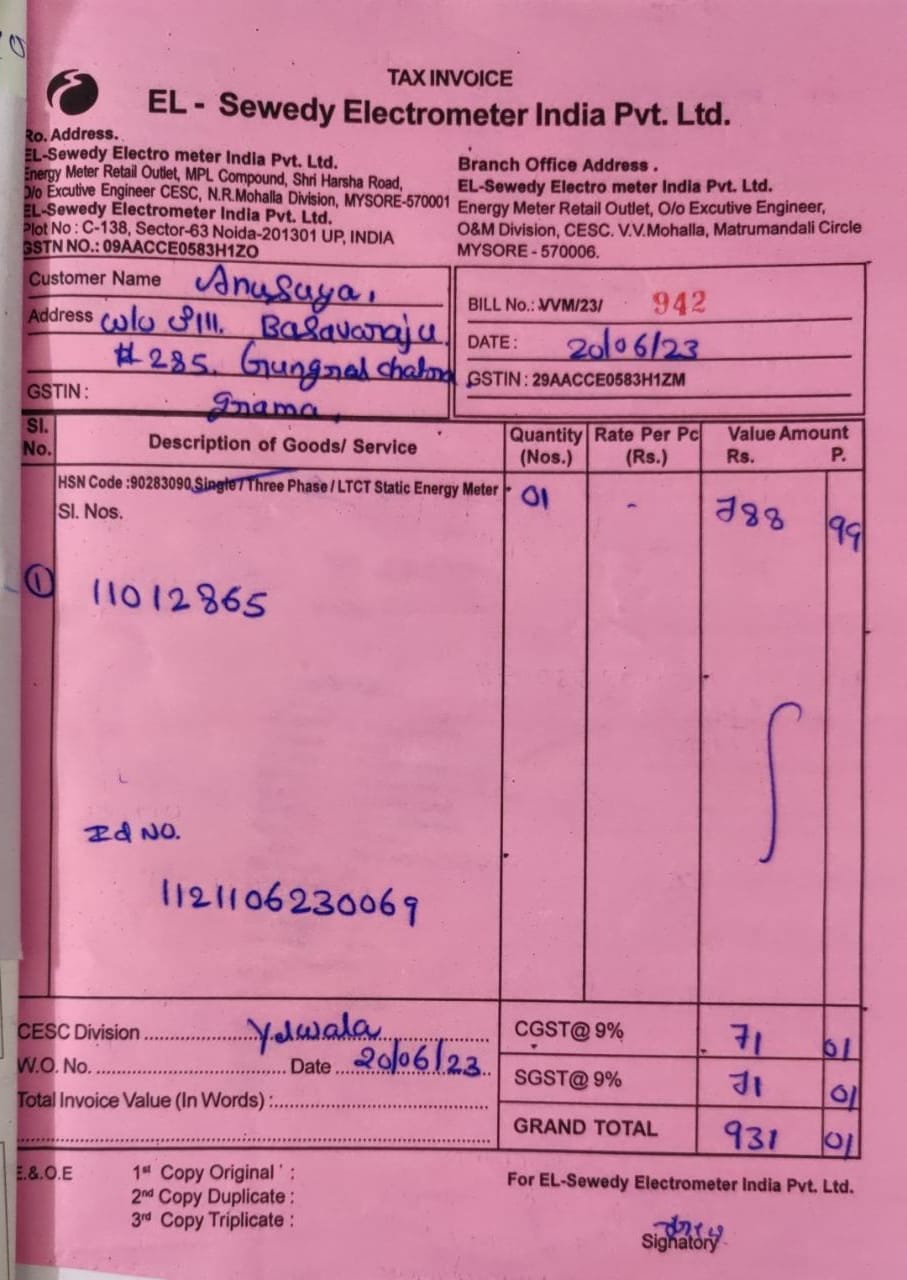 TAX INVOICE
EL - Sewedy Electrometer India Pvt. Ltd.
Ro. Address.
EL-Sewedy Electro meter India Pvt. Ltd.
Energy Meter Retail Outlet, MPL Compound, Shri Harsha Road,
O/o Excutive Engineer CESC, N.R.Mohalla Division, MYSORE-570001
EL-Sewedy Electrometer India Pvt. Ltd.
Plot No : C-138, Sector-63 Noida-201301 UP, INDIA
GSTN NO.: 09AACCE0583H1ZO
Branch Office Address .
EL-Sewedy Electro meter India Pvt. Ltd.
Energy Meter Retail Outlet, O/o Excutive Engineer,
O&M Division, CESC. V.V.Mohalla, Matrumandali Circle
MYSORE - 570006.
Customer Name Anusuya,
Address w/o Basavaraju
# 285.
GSTIN : grama,
BILL No.: VVM/23/ 942
DATE : 20/06/23
GSTIN : 29AACCE0583H1ZM
Sl. No. Description of Goods/ Service Quantity (Nos.) Rate Per Pc (Rs.) Value Amount Rs. P.
HSN Code :90283090,Single / Three Phase / LTCT Static Energy Meter 01 - 788 99
Sl. Nos.
1 11012865
Id NO.
1121106230069
CESC Division Yelwala
W.O. No. Date 20/06/23
Total Invoice Value (In Words) :
CGST@ 9% 71 01
SGST@ 9% 71 01
GRAND TOTAL 931 01
E.&.O.E
1st Copy Original :
2nd Copy Duplicate :
3rd Copy Triplicate :
For EL-Sewedy Electrometer India Pvt. Ltd.
Signatory